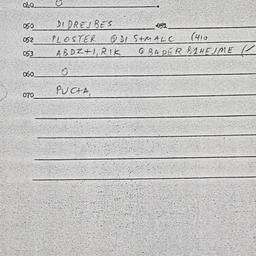 040 O
050 DIDREJBES
052 PLOSTER @DI S+MALC (410
053 ABDZ+1,RIK @BADER
060 O
070 PUC+A,